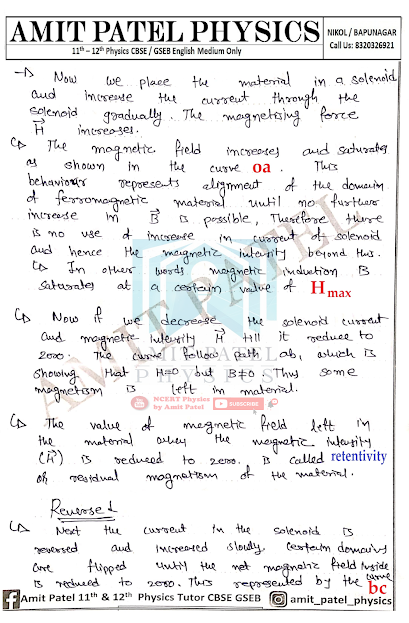 AMIT PATEL PHYSICS
11th – 12th Physics CBSE / GSEB English Medium Only
NIKOL / BAPUNAGAR
Call Us: 8320326921
Now we place the material in a solenoid
and increase the current through the
solenoid gradually. The magnetising force
H increases.
The magnetic field increases and saturates
as shown in the curve oa. This
behaviour represents alignment of the domain
of ferromagnetic material until no further
increase in B is possible, Therefore there
is no use of increase in current of solenoid
and hence the magnetic intensity beyond this.
In other words magnetic induction B
saturates at a certain value of Hmax
Now if we decrease the solenoid current
and magnetic intensity H till it reduce to
zero. The curve follow path ab, which is
showing that H=0 but B≠0. Thus some
magnetism is left in material.
AMIT PATEL
PHYSICS
NCERT Physics
by Amit Patel
SUBSCRIBE
The value of magnetic field left in
the material when the magnetic intensity
(H) is reduced to zero. is called retentivity
or residual magnetism of the material.
Reverse
Next the current in the solenoid is
reversed and increased slowly, certain domains
are flipped until the net magnetic field inside
is reduced to zero. This represented by the curve
bc
Amit Patel 11th & 12th Physics Tutor CBSE GSEB
amit_patel_physics